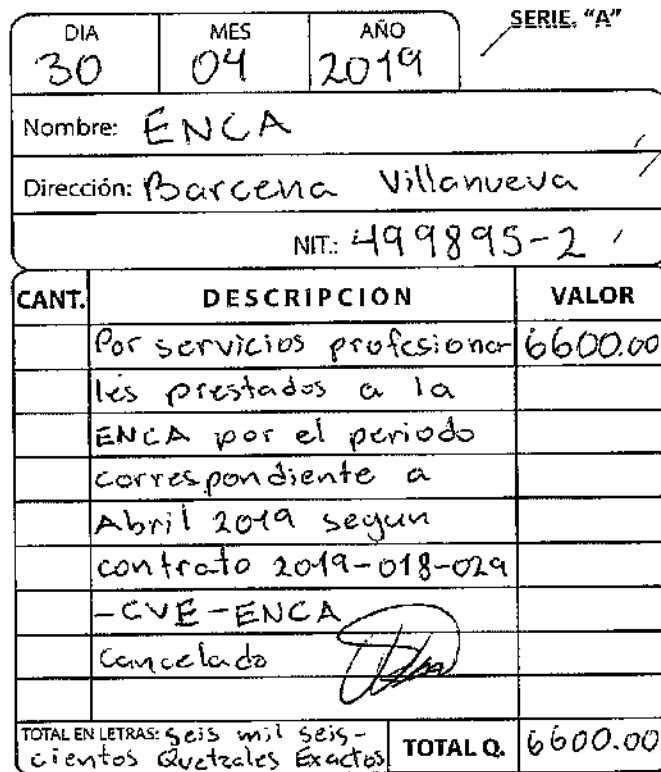 SERIE. "A"
DIA MES AÑO
30 04 2019
Nombre: ENCA
Dirección: Barcena Villanueva
NIT.: 499895-2
CANT. DESCRIPCION VALOR
Por servicios profesiona 6600.00
les prestados a la
ENCA por el periodo
correspondiente a
Abril 2019 segun
contrato 2019-018-029
-CVE-ENCA
Cancelado
TOTAL EN LETRAS: Seis mil seis-
cientos Quetzales Exactos TOTAL Q. 6600.00